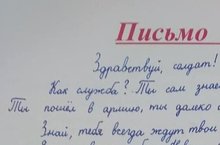 Письмо
Здравствуй, солдат!
Как служба? Ты сам знае
Ты пошёл в армию, ты далеко о
Знай, тебя всегда ждут твои